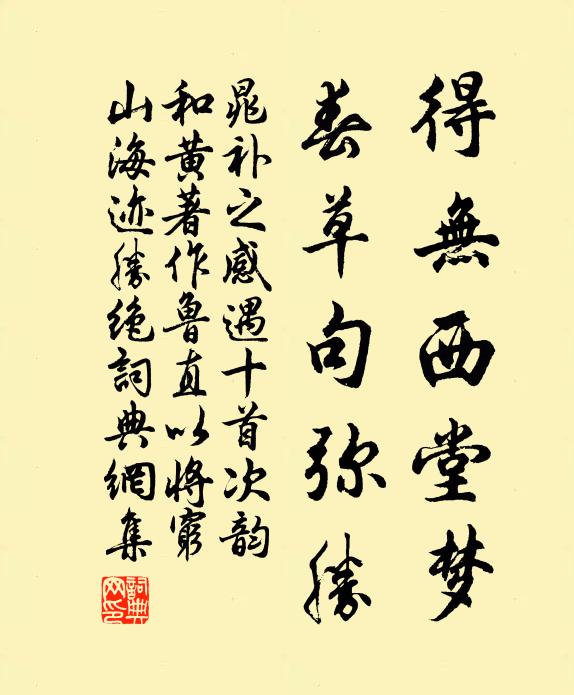 得無西堂梦
春草句弥勝
晁补之感遇十首次韵
和黄著作鲁直以将穷
山海迹勝绝詞典網集
詞典网印